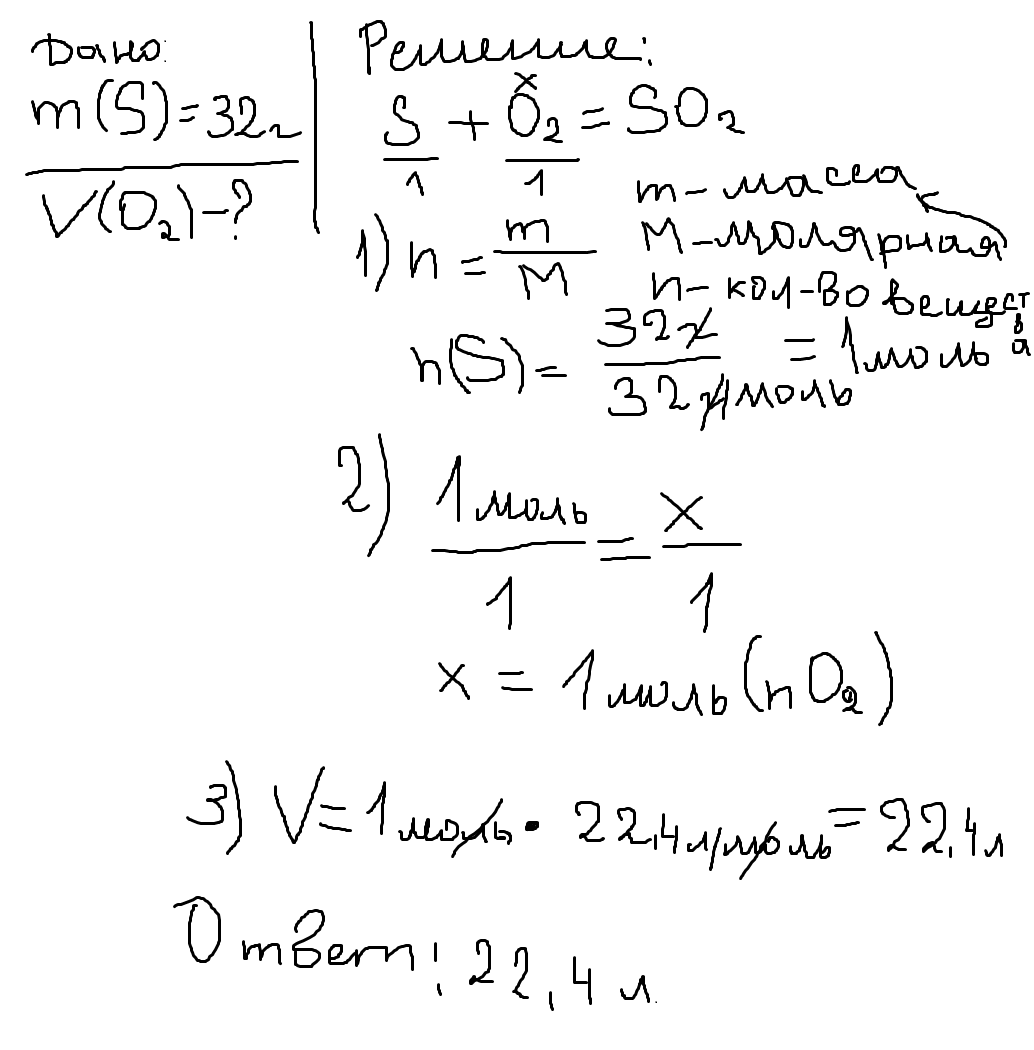 Дано:
m(S)=32г
V(O₂)-?
Решение:
x
S + O₂ = SO₂
1 1
1) n = m/M
m - масса
M - молярная
n - кол-во вещества
n(S) = 32г/32г/моль = 1моль
2) 1моль/1 = x/1
x = 1моль (nO₂)
3) V = 1моль · 22,4л/моль = 22,4л
Ответ: 22,4 л